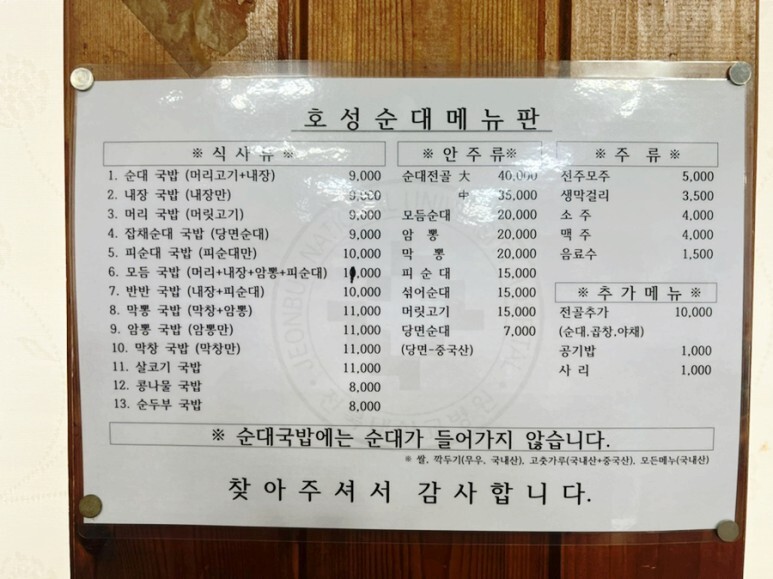 호성순대메뉴판
※ 식 사 류 ※
1. 순대 국밥 (머리고기+내장) 9,000
2. 내장 국밥 (내장만) 9,000
3. 머리 국밥 (머릿고기) 9,000
4. 잡채순대 국밥 (당면순대) 9,000
5. 피순대 국밥 (피순대만) 10,000
6. 모듬 국밥 (머리+내장+암뽕+피순대)
7. 반반 국밥 (내장+피순대) 10,000
8. 막뽕 국밥 (막창+암뽕) 11,000
9. 암뽕 국밥 (암뽕만) 11,000
10. 막창 국밥 (막창만) 11,000
11. 살코기 국밥 11,000
12. 콩나물 국밥 8,000
13. 순두부 국밥 8,000
※ 안 주 류※
순대전골 大 40,000
中 35,000
모듬순대 20,000
암 뽕 20,000
막 뽕 20,000
피 순 대 15,000
섞어순대 15,000
머릿고기 15,000
당면순대 7,000
(당면-중국산)
※ 주 류 ※
전주모주 5,000
생막걸리 3,500
소 주 4,000
맥 주 4,000
음료수 1,500
※ 추 가 메 뉴 ※
전골추가 10,000
(순대,곱창,야채)
공기밥 1,000
사 리 1,000
※ 순대국밥에는 순대가 들어가지 않습니다.
※ 쌀, 깍두기(무우, 국내산), 고춧가루(국내산+중국산), 모든메뉴(국내산)
찾 아 주 셔 서 감 사 합 니 다.